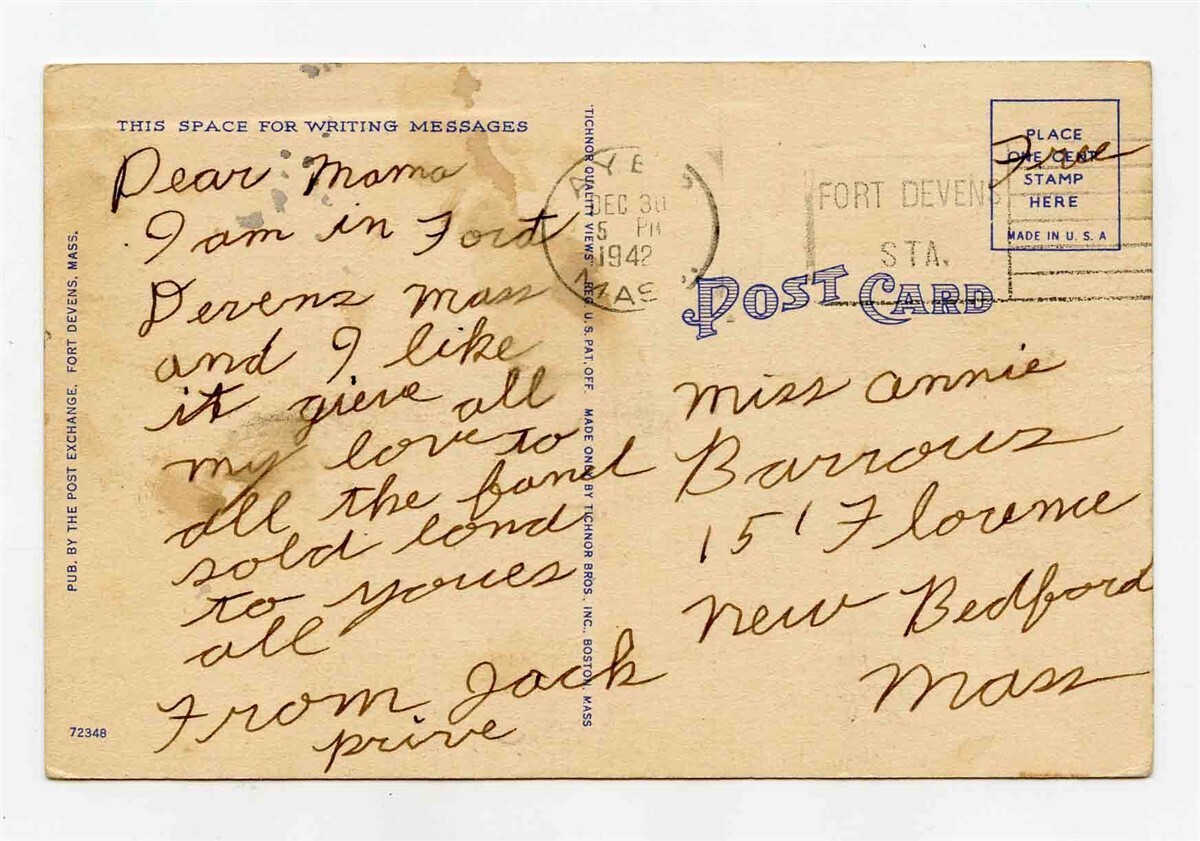 THIS SPACE FOR WRITING MESSAGES
Dear Mama
I am in Ford
Devens Mass
and I like
it gieve all
my love to
all the fand
sold lond
to youes
all
From Jack
prive
PUB. BY THE POST EXCHANGE, FORT DEVENS, MASS.
72348
"TICHNOR QUALITY VIEWS" REG. U.S. PAT. OFF. MADE ONLY BY TICHNOR BROS., INC., BOSTON, MASS
AYER
DEC 30
5 PM
1942
MASS
FORT DEVENS
STA.
PLACE
ONE CENT
STAMP
HERE
MADE IN U.S.A
Free
POST CARD
Miss Annie
Barrows
151 Florence
New Bedford
Mass